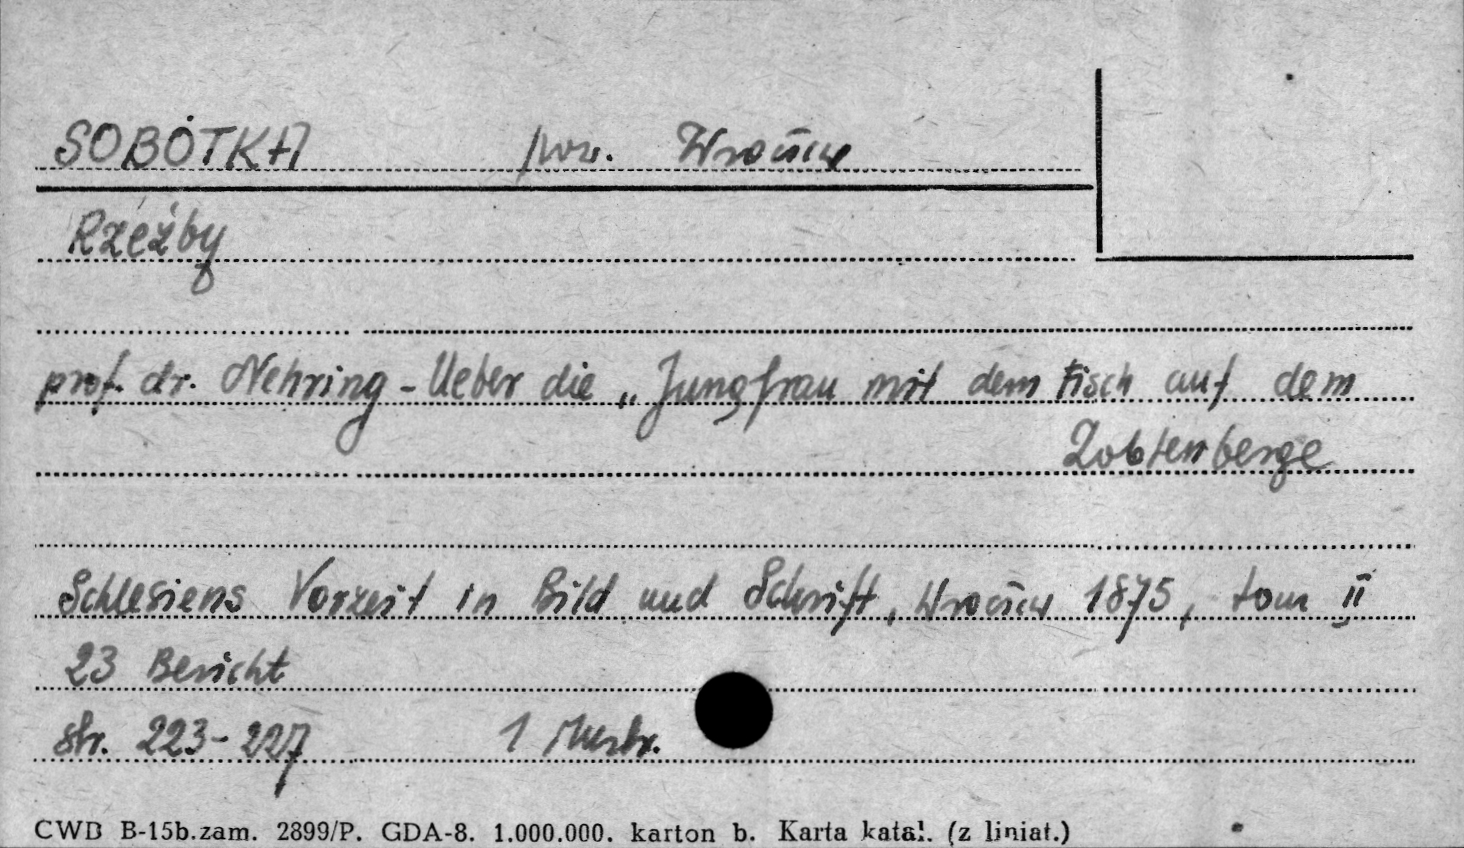 SOBÓTKA pow. Wrocław
Rzeźby
prof. dr. Nehring - Ueber die „Jungfrau mit dem Fisch auf dem
Zobtenberge
Schlesiens Vorzeit in Bild und Schrift, Wrocław 1875, tom II
23 Bericht
str. 223-227 1 ilustr.
CWD B-15b.zam. 2899/P. GDA-8. 1.000.000. karton b. Karta katal. (z liniat.)